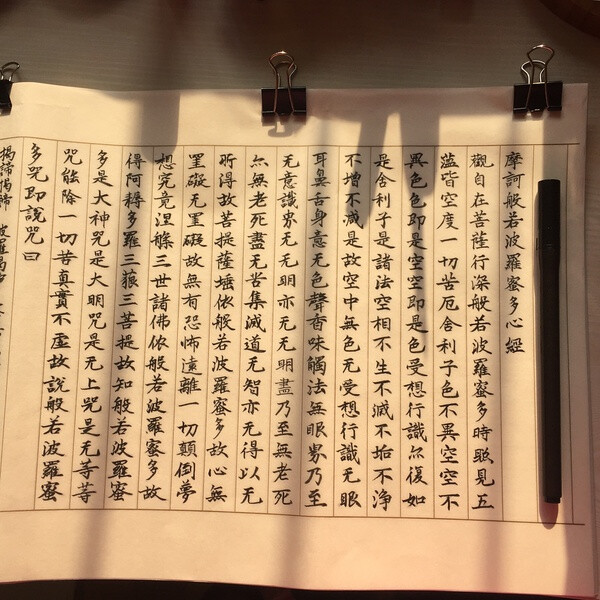 摩訶般若波羅蜜多心經
觀自在菩薩行深般若波羅蜜多時照見五
蘊皆空度一切苦厄舍利子色不異空空不
異色色即是空空即是色受想行識亦復如
是舍利子是諸法空相不生不滅不垢不淨
不增不减是故空中無色无受想行識无眼
耳鼻舌身意无色聲香味觸法無眼界乃至
无意識界无无明亦无无明盡乃至無老死
亦無老死盡无苦集滅道无智亦无得以无
所得故菩提薩埵依般若波羅蜜多故心無
罣礙无罣礙故無有恐怖遠離一切顛倒夢
想究竟涅槃三世諸佛依般若波羅蜜多故
得阿耨多羅三藐三菩提故知般若波羅蜜
多是大神咒是大明咒是无上咒是无等等
咒能除一切苦真實不虛故說般若波羅蜜
多咒即說咒曰
揭諦揭諦